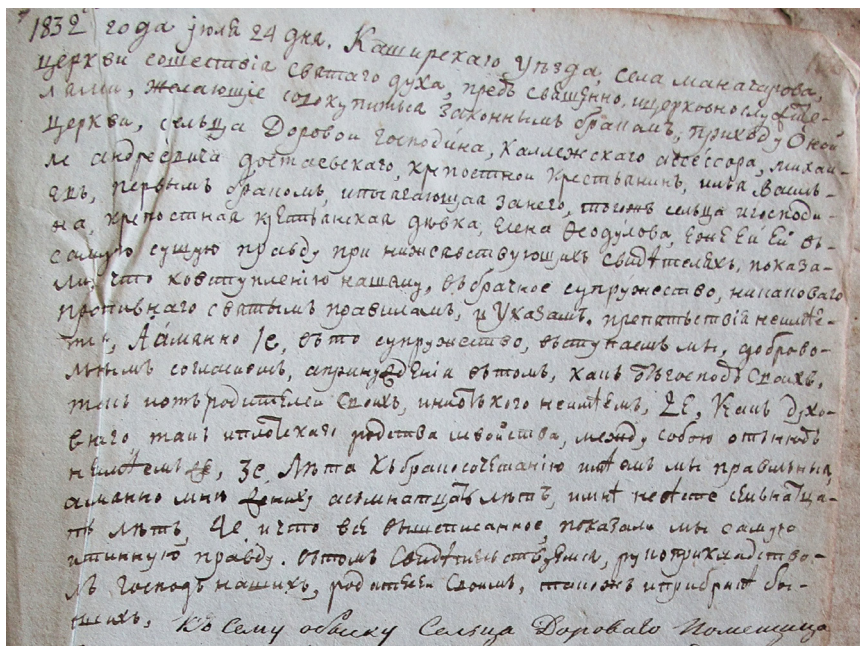 1832 года июля 24 дня. Каширскаго уѣзда, села маначарова,
церкви сошествія святаго духа, предъ священно, ицерковнослужите-
лями, желающіе совокупиться законнымъ бракомъ, приходу Оной
церкви, сельца Доровои господина, Каллежскаго ассессора, михаи-
ла андреевича достаевскаго, крѣпостнои крестьянинъ, илья Василь-
евъ, первымъ бракомъ, ипосягающая занего, тогожъ сельца игосподи-
на, крепостная крестьянская дѣвка, Елена Ѳодулова, Ей Ей въ-
самую сущую правду при нижеавствующихъ свидѣтеляхъ, показа-
ли, что ковступленію нашему, въбрачное супружество, никаковаго
противнаго святымъ правиламъ, и указамъ. препятьствія неимѣе-
мъ, Аимянно 1е, въто супружество, въступаемъ мы, доброво-
льнымъ согласиемъ, апринуждѣнія вътомъ, какъ отъгосподъ своихъ,
такъ иотъродителеи своихъ, иниотъкого неимѣемъ, 2е, Какъ духо-
внаго такъ иплотскаго родства исвойства, между собою отънюдъ
неимѣемъ, 3е, Лѣта къбракосочетанію имѣемъ мы правильныя,
аимянно мнѣ жениху осьмнатцать лѣтъ, имнѣ невѣсте семьнатца-
ть лѣтъ, 4е ичто всё вышеписанное, показали мы самую
истинную правду. вътомъ свидѣтельствуемся, рукоприкладство-
мъ господъ нашихъ, родителеи своихъ, такожъ иприбрачѣ бы-
вшихъ, Къ сему обыску Сельца Дороваго Помещица